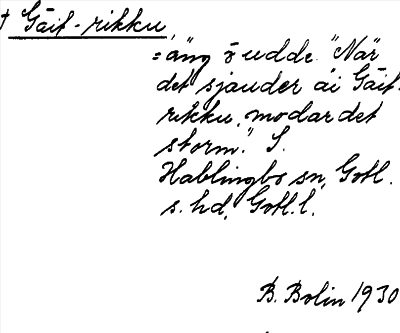 † Gāit-rikku,
= äng ō udde. "När
det sjauder äi Gāit-
rikku, modar det
storm." S.
Hablingbo sn, Gotl.
s. hd, Gotl. l.
B. Bolin 1930